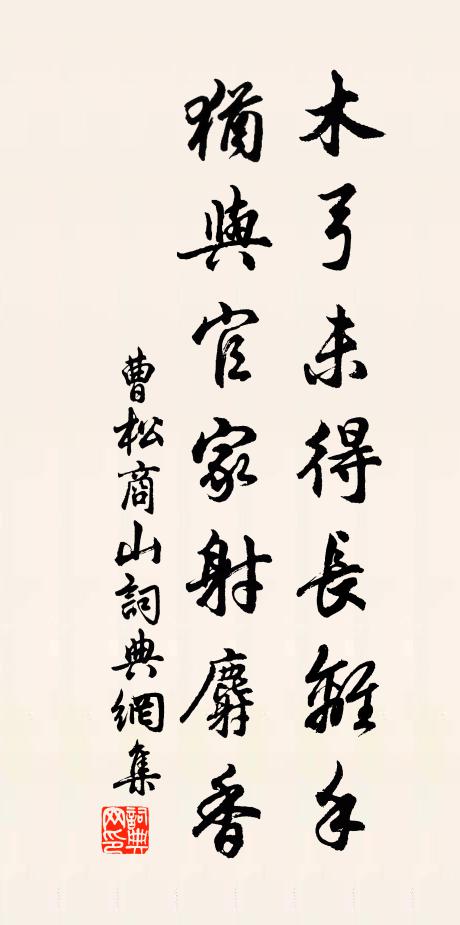 木弓未得長離手
猶與官家射麝香
曹松商山詞典網集
詞典網印